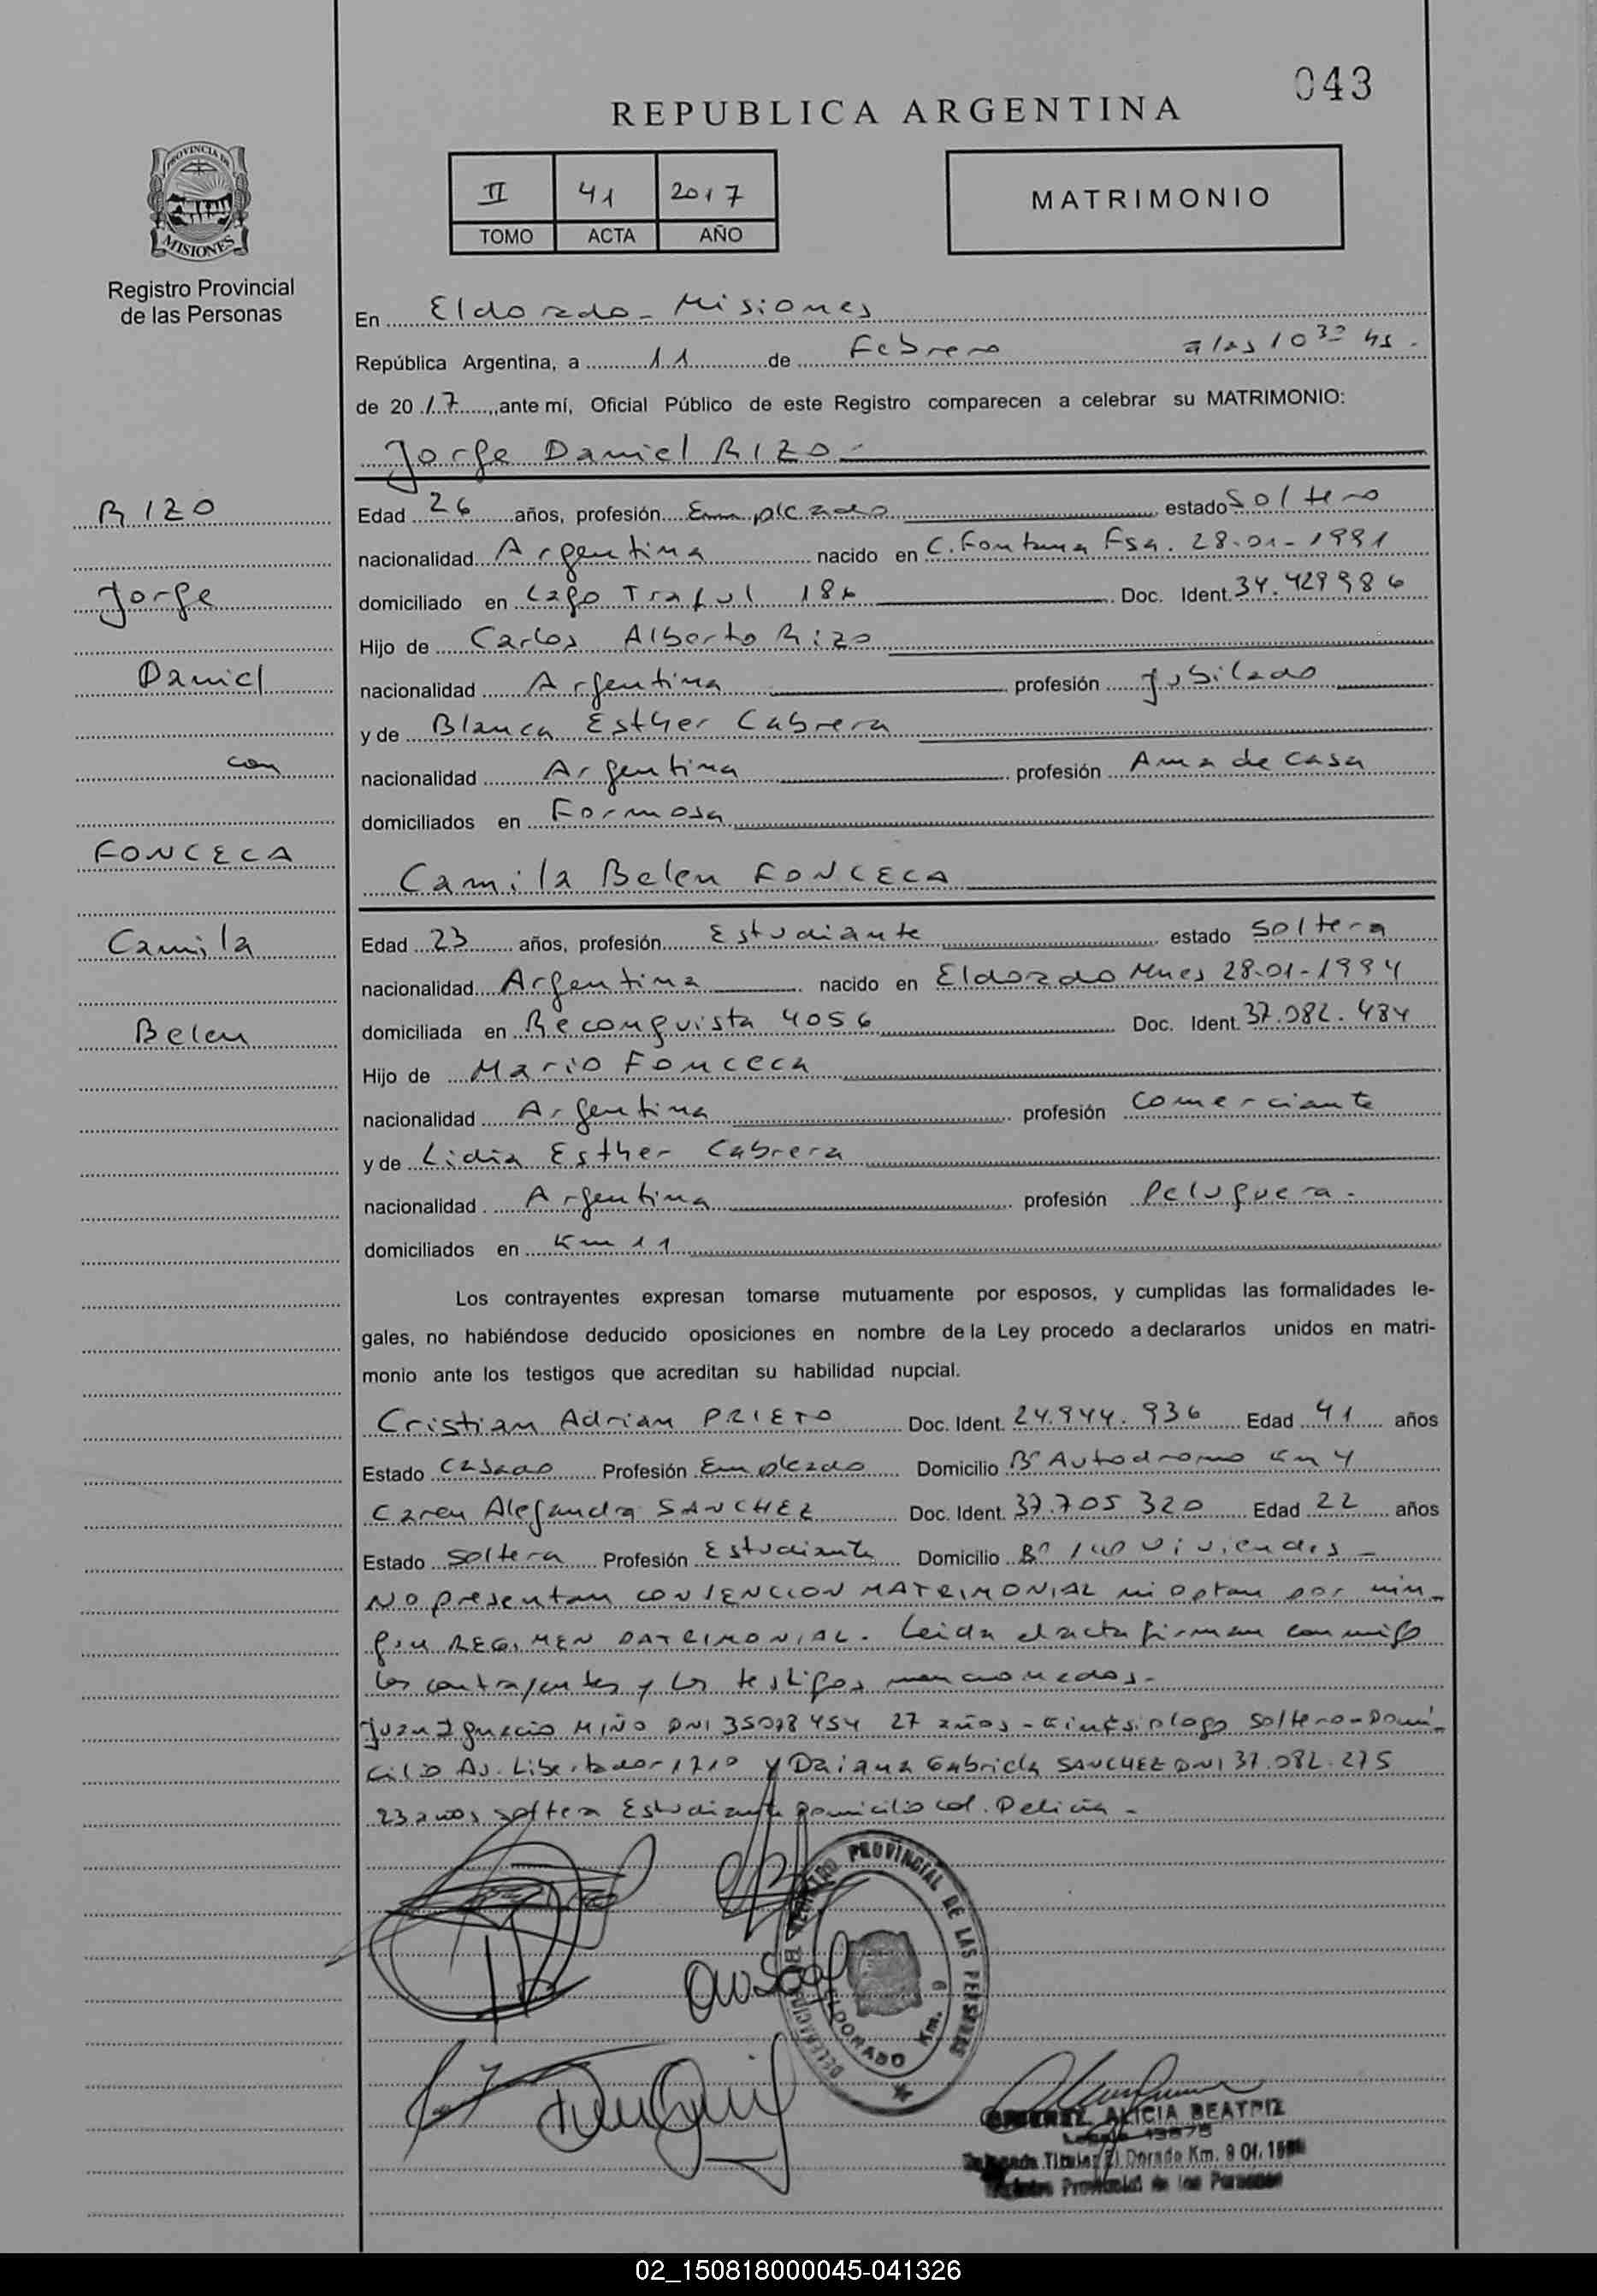 043
REPUBLICA ARGENTINA
II 41 2017
TOMO ACTA AÑO
MATRIMONIO
PROVINCIA DE
MISIONES
Registro Provincial
de las Personas
En Eldorado - Misiones
República Argentina, a 11 de Febrero a las 10 30 hs.
de 20 17 ,ante mí, Oficial Público de este Registro comparecen a celebrar su MATRIMONIO:
Jorge Daniel RIZO
RIZO
Jorge
Daniel
con
FONCECA
Camila
Belen
Edad 26 años, profesión Empleado estado Soltero
nacionalidad Argentina nacido en C. Fontana Fsa. 28-01-1991
domiciliado en Lago Traful 186 Doc. Ident. 34.429986
Hijo de Carlos Alberto Rizo
nacionalidad Argentina profesión Jubilado
y de Blanca Esther Cabrera
nacionalidad Argentina profesión Ama de Casa
domiciliados en Formosa
Camila Belen FONCECA
Edad 23 años, profesión Estudiante estado Soltera
nacionalidad Argentina nacido en Eldorado Mnes 28-01-1994
domiciliada en Reconquista 4056 Doc. Ident. 37.082.484
Hijo de Mario Fonceca
nacionalidad Argentina profesión Comerciante
y de Lidia Esther Cabrera
nacionalidad Argentina profesión Peluquera.
domiciliados en Km 11
Los contrayentes expresan tomarse mutuamente por esposos, y cumplidas las formalidades le-
gales, no habiéndose deducido oposiciones en nombre de la Ley procedo a declararlos unidos en matri-
monio ante los testigos que acreditan su habilidad nupcial.
Cristian Adrian PRIETO Doc. Ident. 24.944.936 Edad 41 años
Estado Casado Profesión Empleado Domicilio Bº Autodromo Km 4
Caren Alejandra SANCHEZ Doc. Ident. 37.705 320 Edad 22 años
Estado Soltera Profesión Estudiante Domicilio Bº 140 Viviendas -
No presentan CONVENCION MATRIMONIAL ni optan por nin-
gun REGIMEN PATRIMONIAL. Leida el acta firman conmigo
los contrayentes y los testigos mencionados.-
Juan Ignacio MIÑO DNI 35008454 27 años - Kinesiologo soltero - Domi-
cilio Av. Libertador 1710 y Daiana Gabriela SANCHEZ DNI 37.082.275
23 años soltera Estudiante Domicilio Col. Delicia -
REGISTRO PROVINCIAL DE LAS PERSONAS
DELEGACION
ELDORADO Km. 9
ALICIA BEATRIZ
Titular El Dorado Km. 9 Of.
Provincial de las Personas
02_150818000045-041326